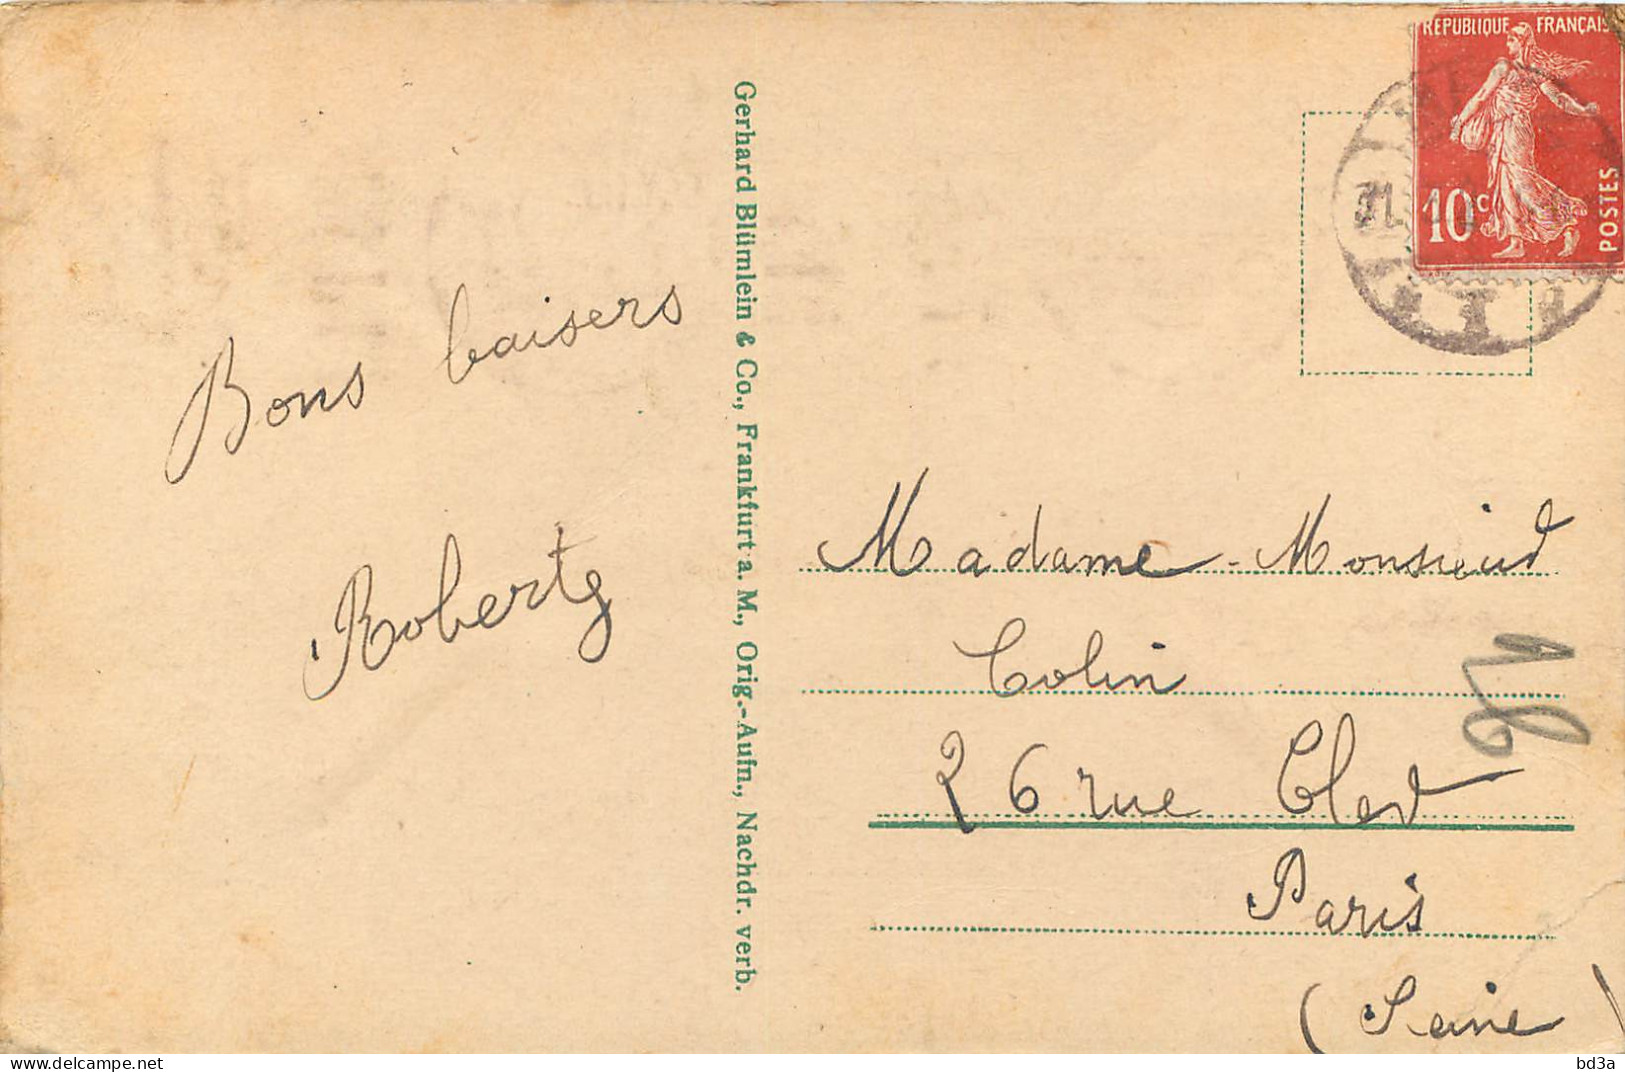 RÉPUBLIQUE FRANÇAISE
10c
POSTES
31.
Bons baisers
Robert
Gerhard Blümlein & Co., Frankfurt a. M., Orig.-Aufn., Nachdr. verb.
Madame - Monsieur
Colin
26 rue Cler
Paris
(Seine)
bd3a